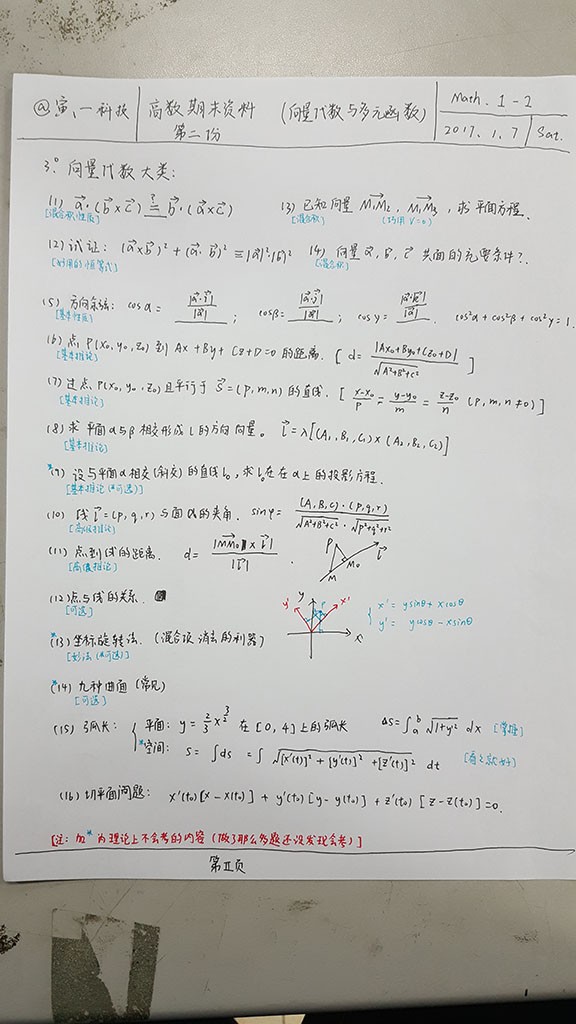 @寅、一科技 高数期末资料 (向量代数与多元函数) Math. 1-2
第二份 2017.1.7 Sat.
3° 向量代数大类:
(1) a⃗·(b⃗×c⃗) =? b⃗·(a⃗×c⃗) (3) 已知向量 M₁M₂⃗, M₁M₃⃗, 求平面方程.
[混合积性质] [混合积] (巧用 V=0)
(2) 试证: (a⃗×b⃗)² + (a⃗·b⃗)² ≡ |a⃗|²·|b⃗|² (4) 向量 a⃗, b⃗, c⃗ 共面的充要条件?
[好用的恒等式] [混合积]
(5) 方向余弦: cosα = |a⃗·i⃗|/|a⃗| ; cosβ = |a⃗·j⃗|/|a⃗| ; cosγ = |a⃗·k⃗|/|a⃗| . cos²α + cos²β + cos²γ = 1.
[基本性质]
(6) 点 P(x₀, y₀, z₀) 到 Ax + By + Cz + D = 0 的距离. [ d = |Ax₀+By₀+Cz₀+D|/√(A²+B²+C²) ]
[基本推论]
(7) 过点 P(x₀, y₀, z₀) 且平行于 s⃗ = (p, m, n) 的直线. [ (x-x₀)/p = (y-y₀)/m = (z-z₀)/n (p, m, n ≠ 0) ]
[基本推论]
(8) 求平面 α 与 β 相交形成 l 的方向向量。 l⃗ = λ[(A₁, B₁, C₁) × (A₂, B₂, C₂)]
[基本推论]
*(9) 设与平面 α 相交(斜交)的直线 l₀, 求 l₀ 在在 α 上的投影方程.
[基本推论 (*可选)]
(10) 线 l⃗ = (p, q, r) 与面 α 的夹角. sinφ = (A, B, C)·(p, q, r)/(√(A²+B²+C²)·√(p²+q²+r²))
[高级推论]
(11) 点到线的距离. d = |MM₀⃗ × l⃗|/|l⃗| . P l⃗ M₀ M
[高级推论]
(12) 点与线的关系.
[可选]
y y' x' x { x' = ysinθ + xcosθ
y' = ycosθ - xsinθ
*(13) 坐标旋转法. (混合项消去的利器)
[妙法 (*可选)]
*(14) 九种曲面 (常见)
[可选]
(15) 弧长: { 平面: y = 2/3 x^(3/2) 在 [0, 4] 上的弧长 ΔS = ∫ₐᵇ √(1+y'²) dx [掌握]
*空间: S = ∫ds = ∫ √([x'(t)]² + [y'(t)]² + [z'(t)]²) dt [看之就好]
(16) 切平面问题: x'(t₀)[x - x(t₀)] + y'(t₀)[y - y(t₀)] + z'(t₀)[z - z(t₀)] = 0.
[注: 加 * 为理论上不会考的内容 (做了那么多题还没发现会考)]
第Ⅱ页